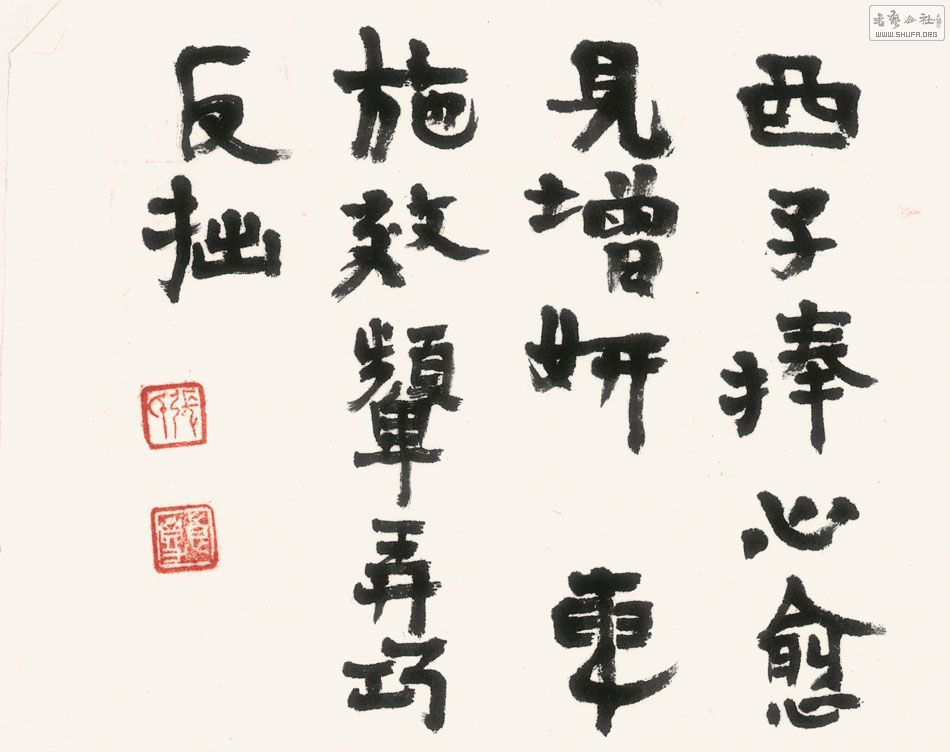 西子捧心愈
見增妍東
施效顰弄巧
反拙
WWW.SHUFA.ORG